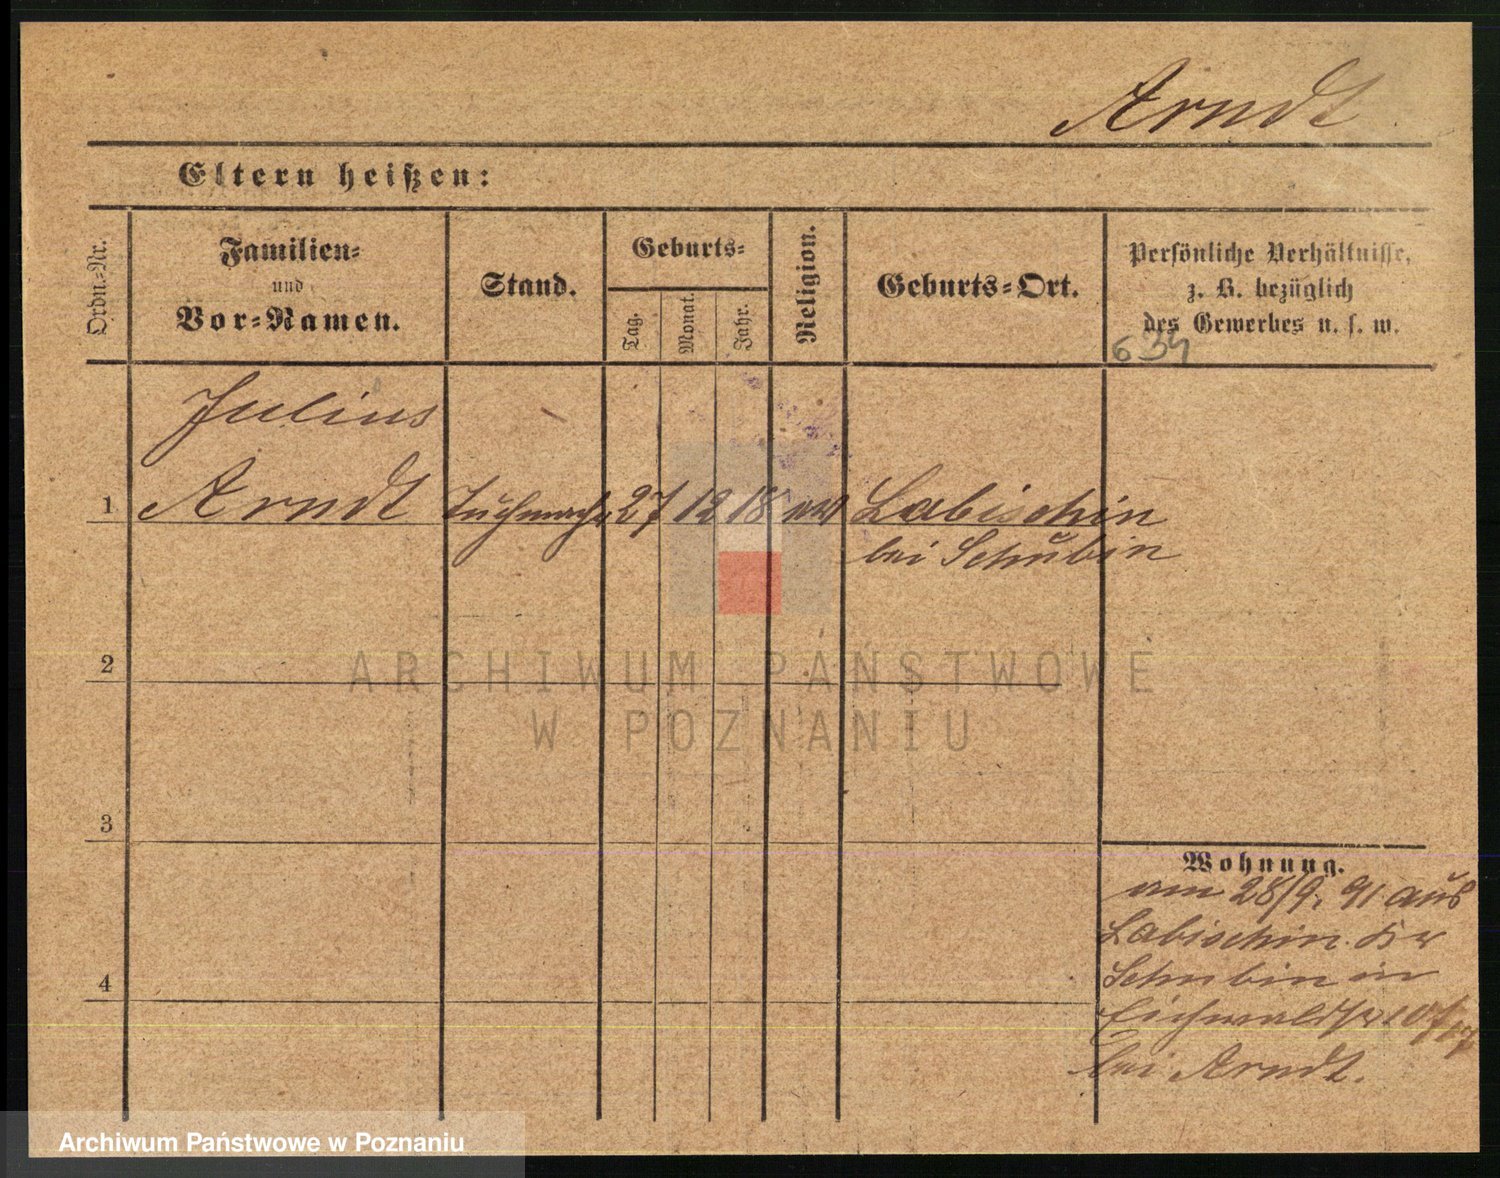 Arndt
Eltern heißen:
Ordn-Nr.
Familien-
und
Vor-Namen.
Stand.
Geburts-
Tag.
Monat.
Jahr.
Religion.
Geburts-Ort.
Persönliche Verhältnisse,
z. B. bezüglich
des Gewerbes u. s. w.
634
Julius
1 Arndt Tuchmacher 27 12 18 Labischin
bei Schubin
2
ARCHIWUM PAŃSTWOWE
W POZNANIU
3
Wohnung.
am 28/9. 91 aus
Labischin Kr
4 Schubin in
bei Arndt.
Archiwum Państwowe w Poznaniu